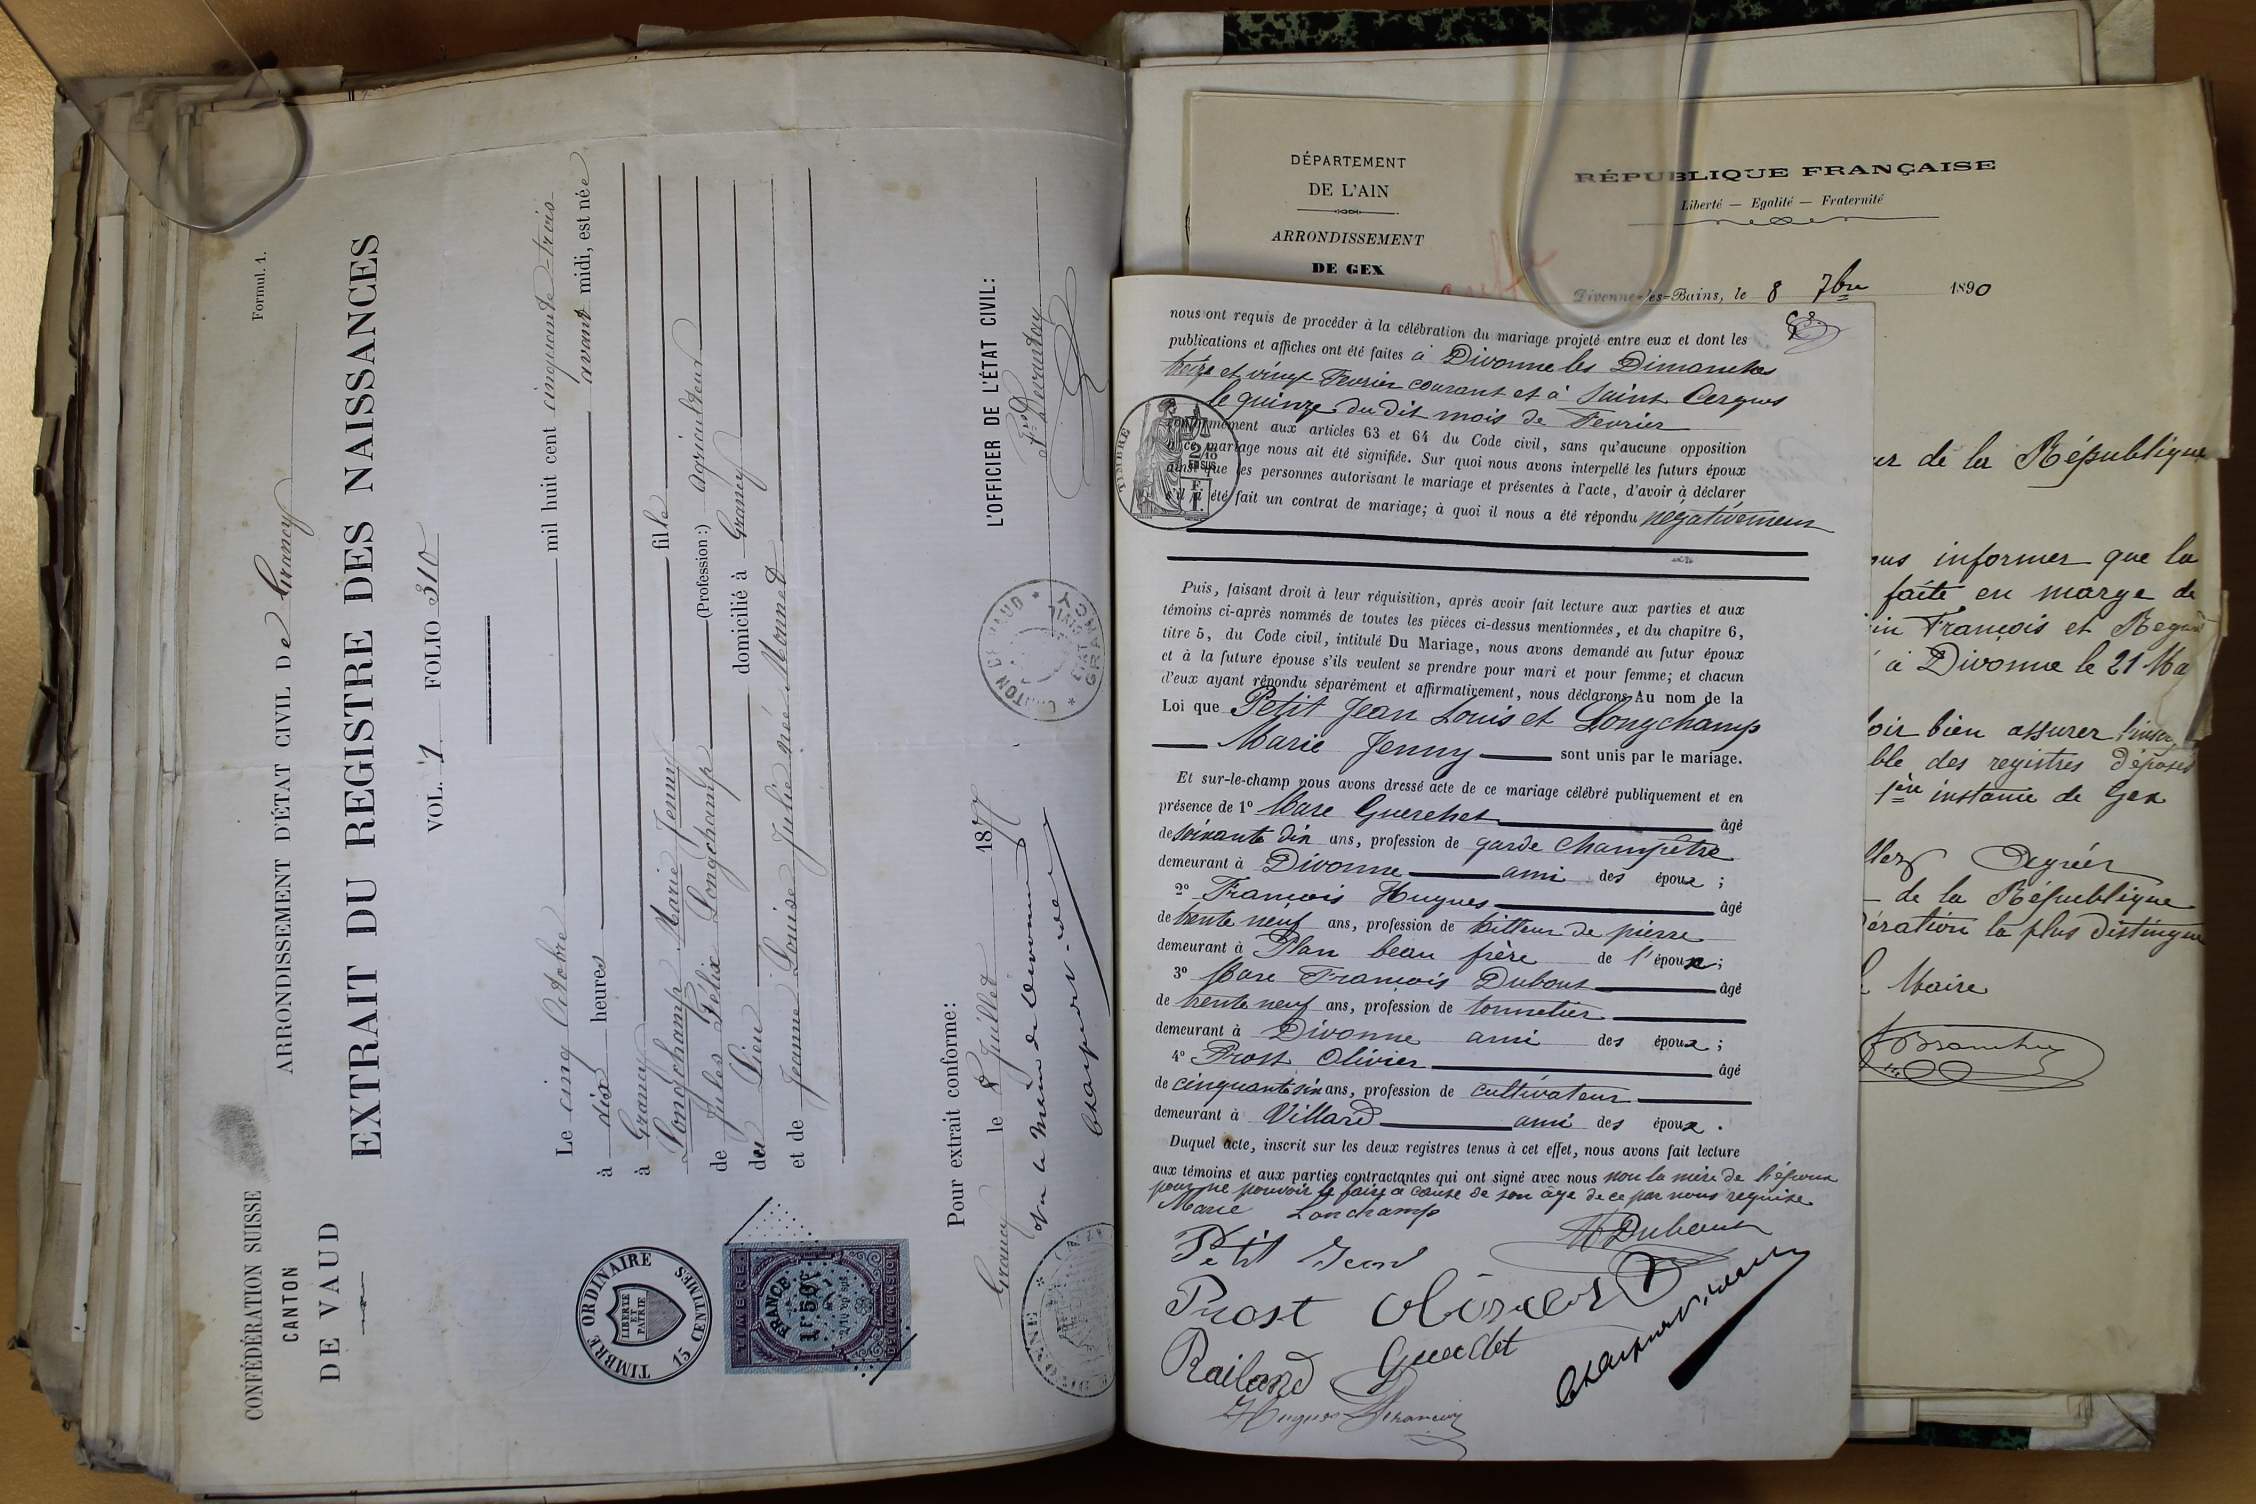 CONFÉDÉRATION SUISSE
CANTON
DE VAUD
Formul. 1.
ARRONDISSEMENT D'ÉTAT CIVIL De Grancy
EXTRAIT DU REGISTRE DES NAISSANCES
VOL. 1 FOLIO 310
Le cinq Octobre mil huit cent cinquante-trois
à dix heures avant midi, est née
à Grancy
Longchamp Marie Jenny fille
de Jules Félix Longchamp (Profession:) agriculteur
du Lieu domicilié à Grancy
et de Jeanne Louise Julie née Monned
TIMBRE ORDINAIRE
LIBERTÉ
ET
PATRIE
15 CENTIMES
TIMBRE
FRANCE
1F.50c
DIMENSION
Pour extrait conforme:
Grancy le 8 Juillet 1877
L'OFFICIER DE L'ÉTAT CIVIL:
Vu le Maire de Divonne
CANTON DE VAUD
ÉTAT CIVIL
GRANCY
DÉPARTEMENT
DE L'AIN
ARRONDISSEMENT
DE GEX
RÉPUBLIQUE FRANÇAISE
Liberté — Egalité — Fraternité
Divonne-les-Bains, le 8 7bre 1890
de la République
informer que la
faite en marge de
François et
à Divonne le 21
bien assurer
des registres déposés
1ère instance de Gex
Agréer
de la République
la plus distinguée
Maire
nous ont requis de procéder à la célébration du mariage projeté entre eux et dont les
publications et affiches ont été faites à Divonne les Dimanches
treize et vingt Fevrier courant et à Saint Cergues
le quinze du dit mois de Fevrier
conformément aux articles 63 et 64 du Code civil, sans qu'aucune opposition
à ce mariage nous ait été signifiée. Sur quoi nous avons interpellé les futurs époux
ainsi que les personnes autorisant le mariage et présentes à l'acte, d'avoir à déclarer
s'il a été fait un contrat de mariage; à quoi il nous a été répondu négativement
TIMBRE
Puis, faisant droit à leur réquisition, après avoir fait lecture aux parties et aux
témoins ci-après nommés de toutes les pièces ci-dessus mentionnées, et du chapitre 6,
titre 5, du Code civil, intitulé Du Mariage, nous avons demandé au futur époux
et à la future épouse s'ils veulent se prendre pour mari et pour femme; et chacun
d'eux ayant répondu séparément et affirmativement, nous déclarons Au nom de la
Loi que Petit Jean Louis et Longchamp
Marie Jenny sont unis par le mariage.
Et sur-le-champ nous avons dressé acte de ce mariage célébré publiquement et en
présence de 1° Marc Guerchet âgé
de soixante dix ans, profession de garde champêtre
demeurant à Divonne ami des époux;
2° François Hugues âgé
de trente neuf ans, profession de tailleur de pierre
demeurant à Plan beau frère de l'époux;
3° Marc François Dubout âgé
de trente neuf ans, profession de tonnelier
demeurant à Divonne ami des époux;
4° Prost Olivier âgé
de cinquante six ans, profession de cultivateur
demeurant à Villard ami des époux.
Duquel acte, inscrit sur les deux registres tenus à cet effet, nous avons fait lecture
aux témoins et aux parties contractantes qui ont signé avec nous non la mère de l'époux
pour ne pouvoir le faire à cause de son âge de ce par nous requise
Marie Lonchamp
Petit Jean
Prost Olivier
Railand
Hugues François